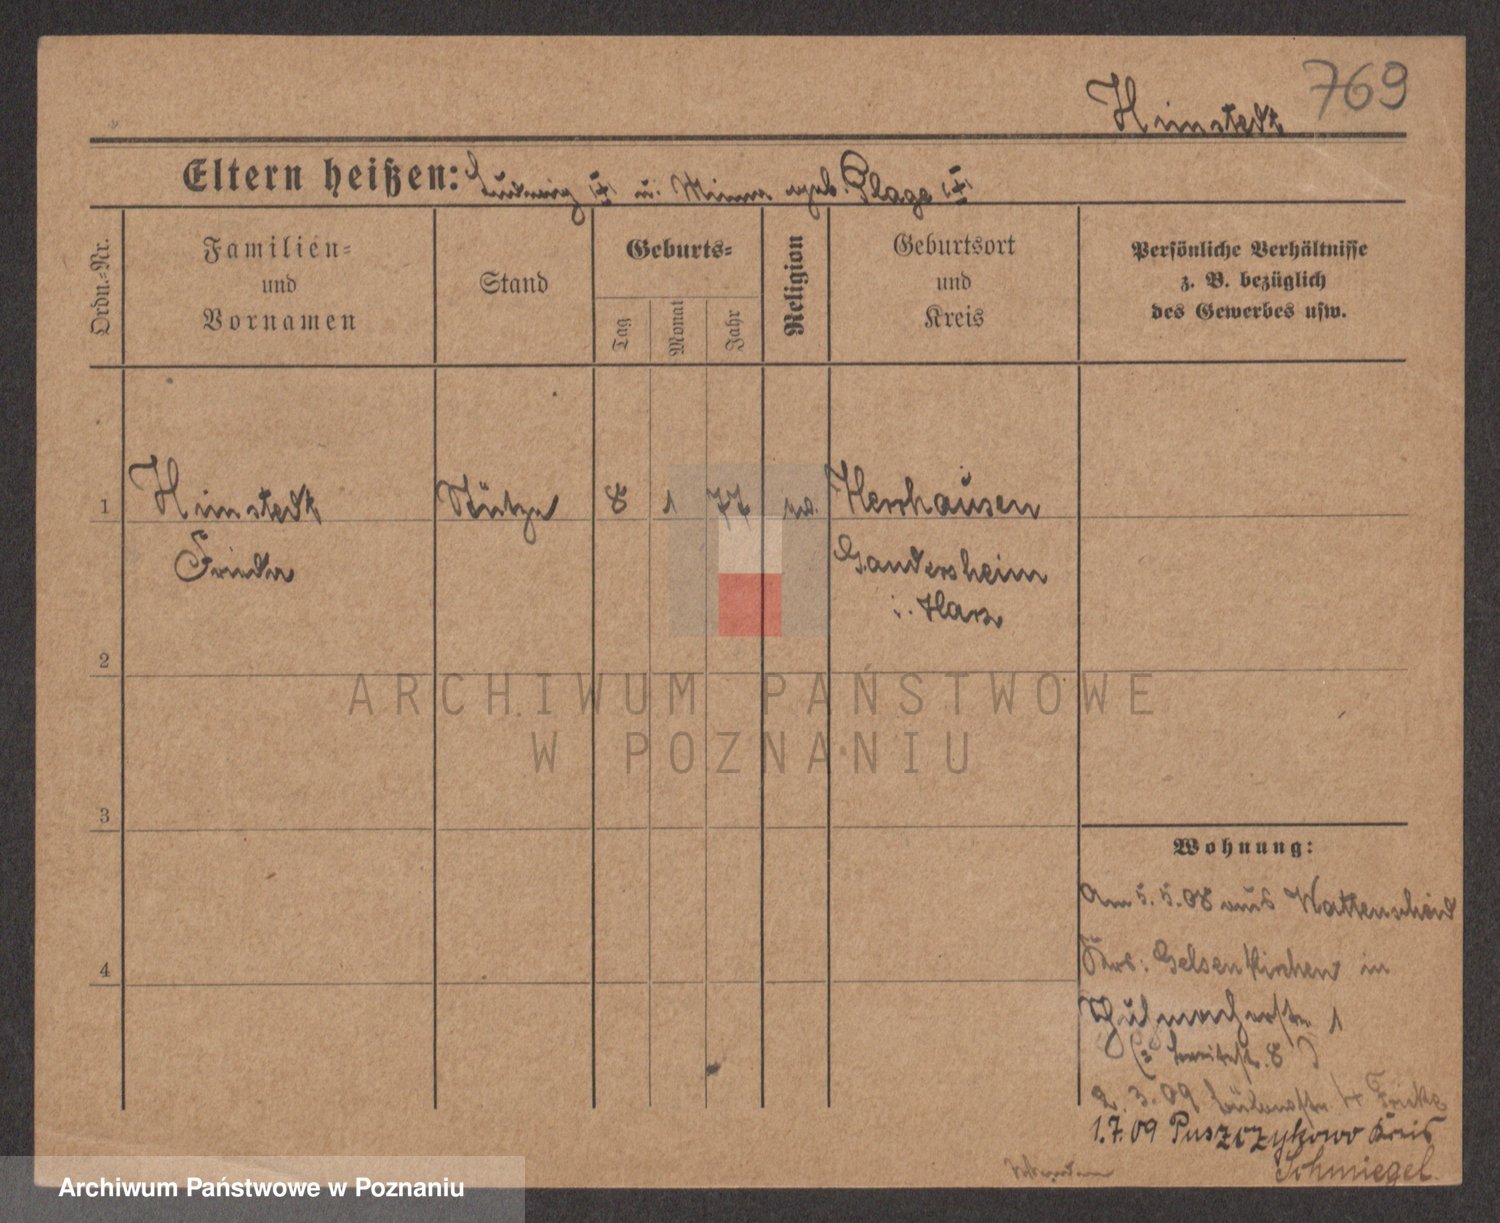 769
Himstedt
Eltern heißen: Ludwig † u. Minna geb. Plage †
Ordn.-Nr.
Familien-
und
Vornamen
Stand
Geburts-
Tag
Monat
Jahr
Religion
Geburtsort
und
Kreis
Persönliche Verhältnisse
z. B. bezüglich
des Gewerbes usw.
1 Himstedt Stütze 8 1 77 ev. Herrhausen
Frieda Gandersheim
i. Harz
2
3
4
Wohnung:
Am 5.5.08 aus Wattenscheid
Krs: Gelsenkirchen in
Schuhmacherstr 1
2.3.09 Fricke
1.7.09 Puszczykowo Kreis
Schmiegel.
ARCHIWUM PAŃSTWOWE
W POZNANIU
Archiwum Państwowe w Poznaniu